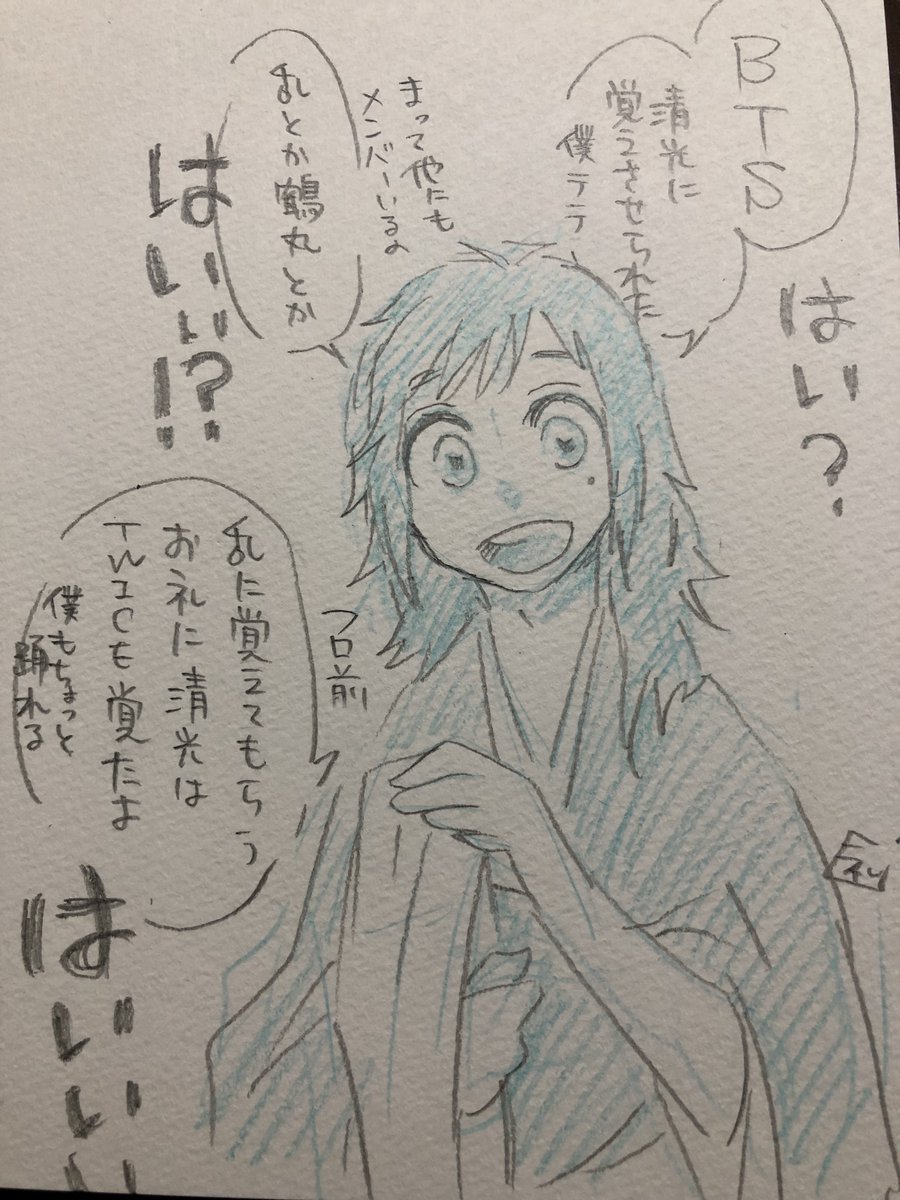 BTS
清光に
覚えさせられた
僕テテ
はい?
まって他にも
メンバーいるの
乱とか鶴丸とか
はいぃ!?
乱に覚えてもらう
お礼に清光は
TWICも覚たよ
僕もちょっと
踊れる
フロ前
はいいい